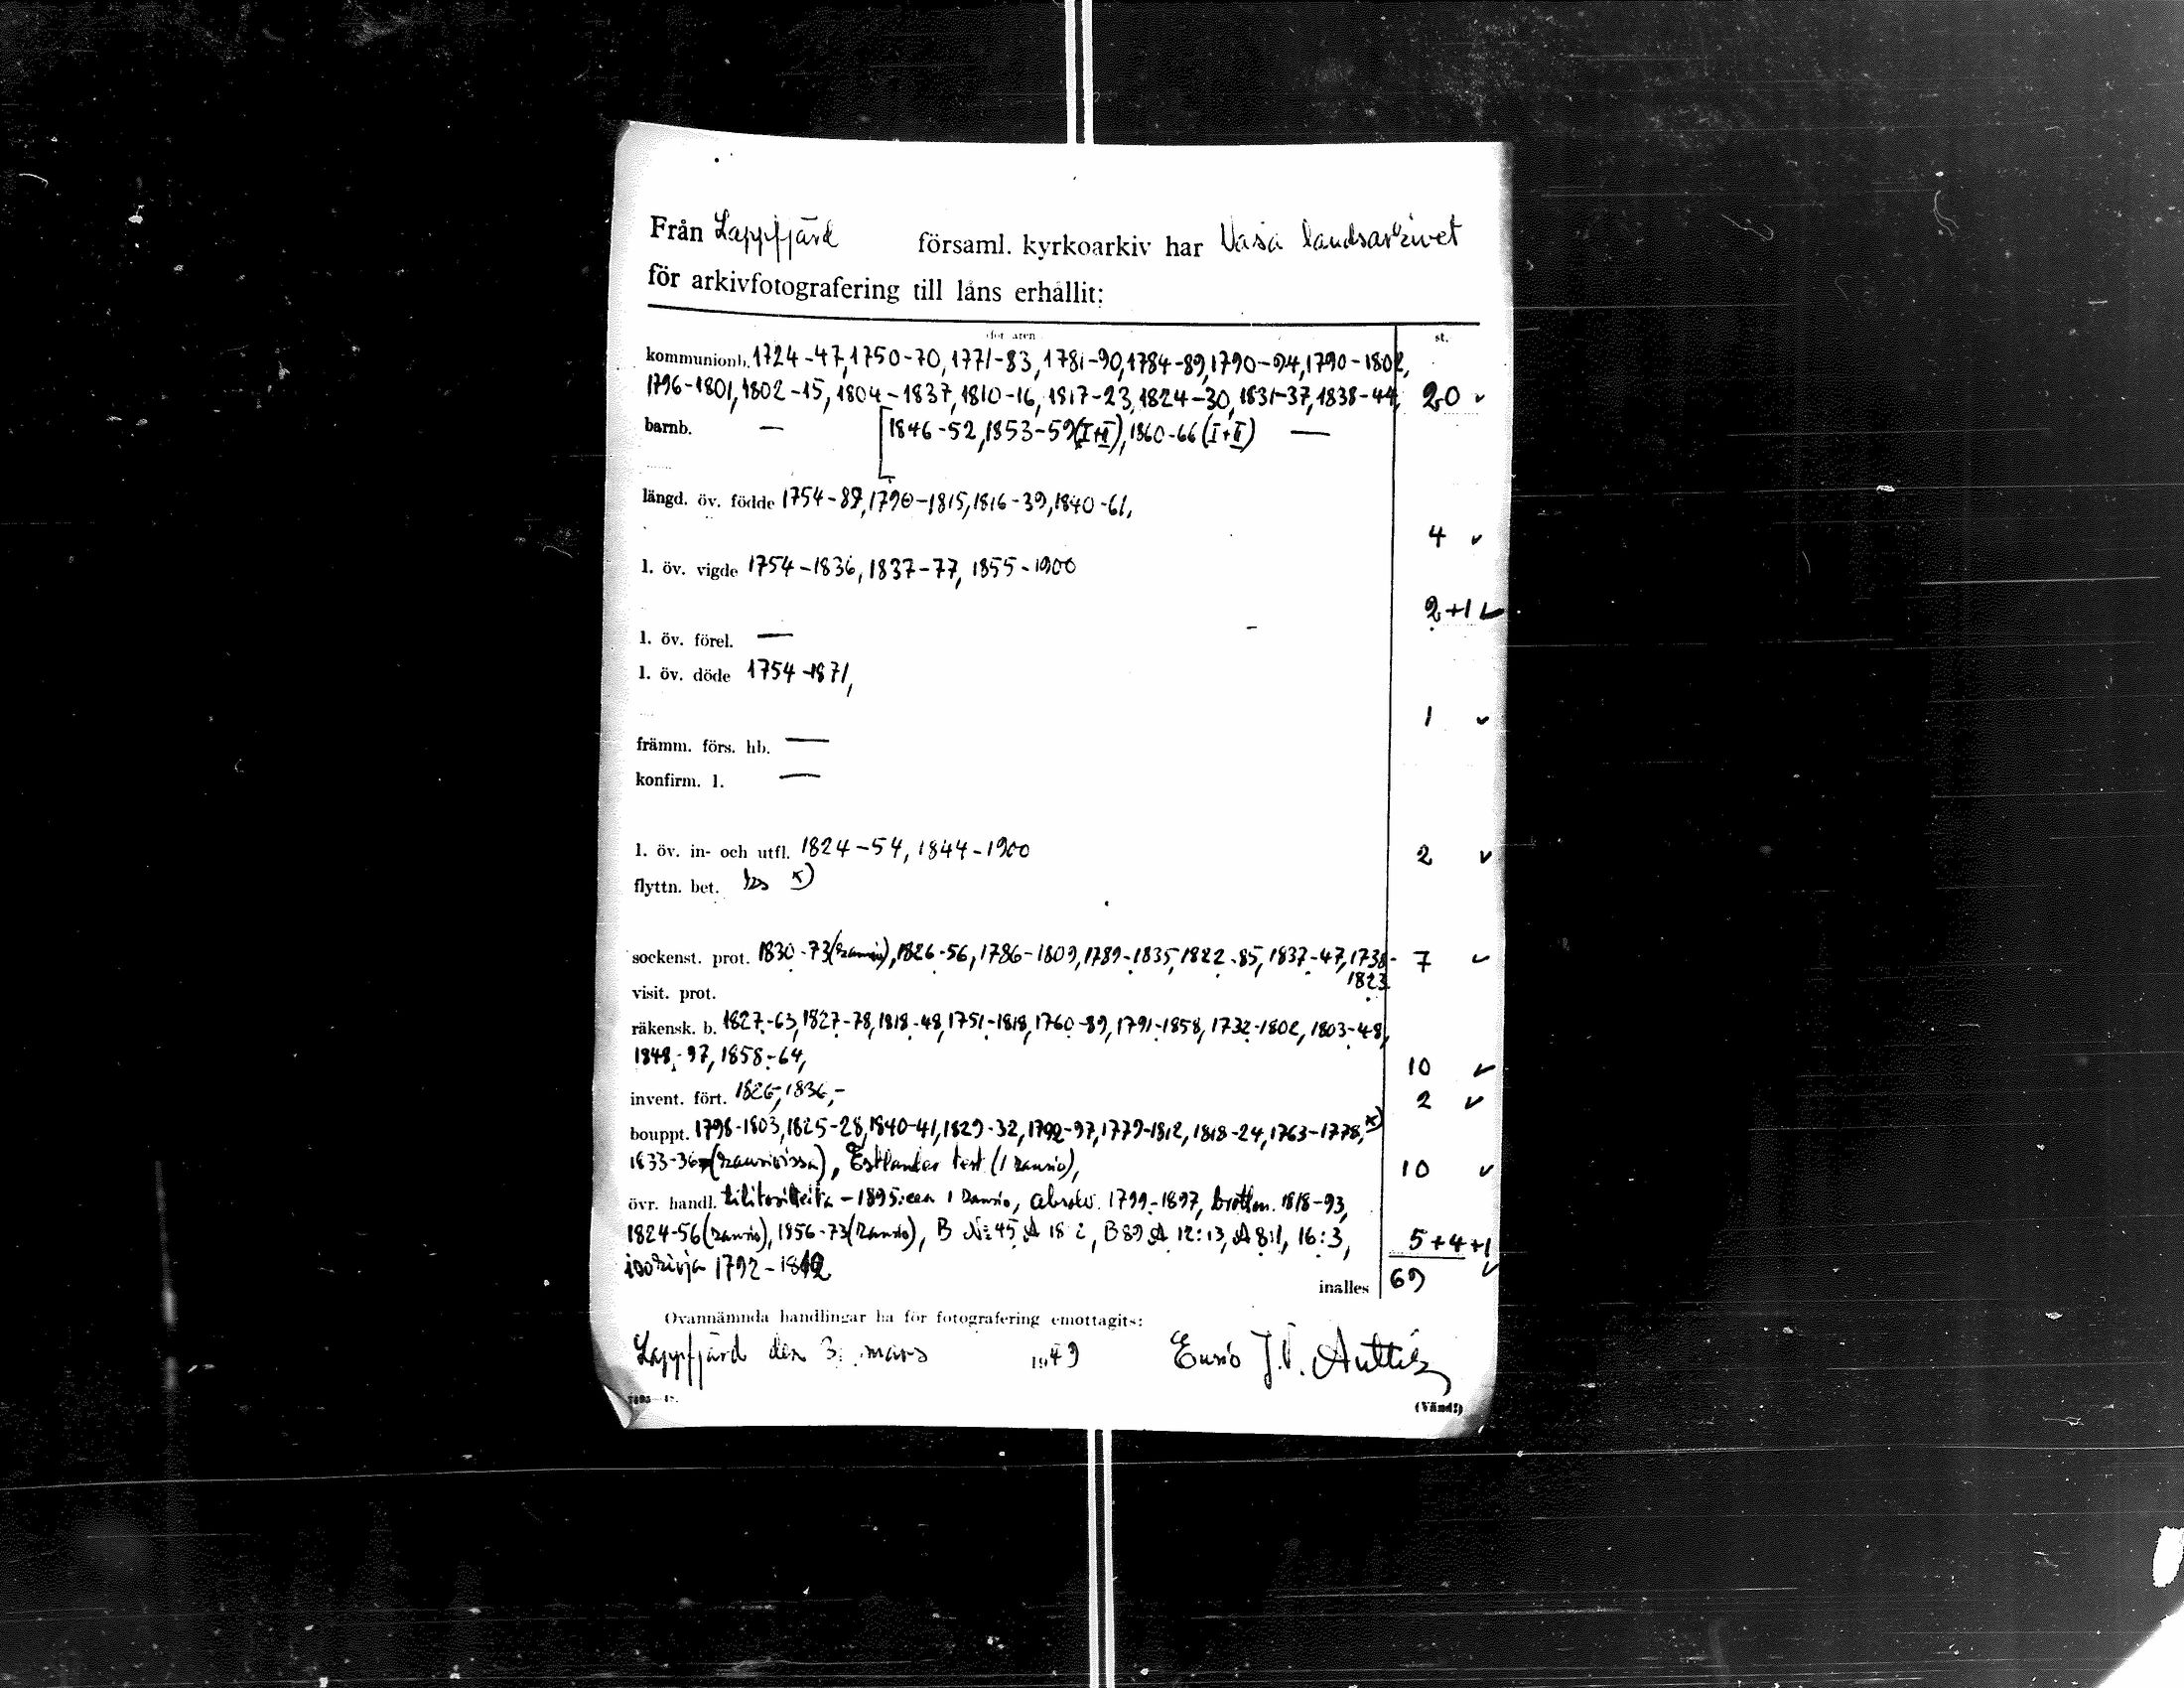 Från Lappfjärd församl. kyrkoarkiv har Vasa landsarkivet
för arkivfotografering till låns erhållit:
för åren st.
kommunionb. 1724-47, 1750-70, 1771-83, 1781-90, 1784-89, 1790-94, 1790-1802,
1796-1801, 1802-15, 1804-1837, 1810-16, 1817-23, 1824-30, 1831-37, 1838-44, 20 ✓
barnb. — [1846-52, 1853-59 (I+II), 1860-66 (I+II) —
längd. öv. födde 1754-89, 1790-1815, 1816-39, 1840-61,
4 ✓
l. öv. vigde 1754-1836, 1837-77, 1855-1900
2+1 ✓
l. öv. förel. —
l. öv. döde 1754-1871,
1 ✓
främm. förs. hb. —
konfirm. l. —
l. öv. in- och utfl. 1824-54, 1844-1900 2 ✓
flyttn. bet. x)
sockenst. prot. 1830-73 (kansio), 1826-56, 1786-1809, 1789-1835, 1822-85, 1837-47, 1738- 7 ✓
1823
visit. prot.
räkensk. b. 1827-63, 1827-78, 1818-48, 1751-1818, 1760-89, 1791-1858, 1732-1802, 1803-48,
1848-97, 1858-64, 10 ✓
invent. fört. 1826, 1836,- 2 ✓
bouppt. 1798-1803, 1825-28, 1840-41, 1829-32, 1792-97, 1779-1812, 1818-24, 1763-1778, x)
1833-36 (kansioissa), Estlander test (1 kansio), 10 ✓
övr. handl. tilitositteita -1895:een 1 kansio, absolv. 1799-1897, brottm. 1818-93,
1824-56 (kansio), 1856-73 (kansio), B N:45 A 18 2, B 89 A 12:13, A 8:1, 16:3, 5+4+1
isokirja 1792-18 ✓
inalles 69
Ovannämnda handlingar ha för fotografering emottagits:
Lappfjärd den 3. mars 1949 Eusio J.V. Anttila
(Vänd!)